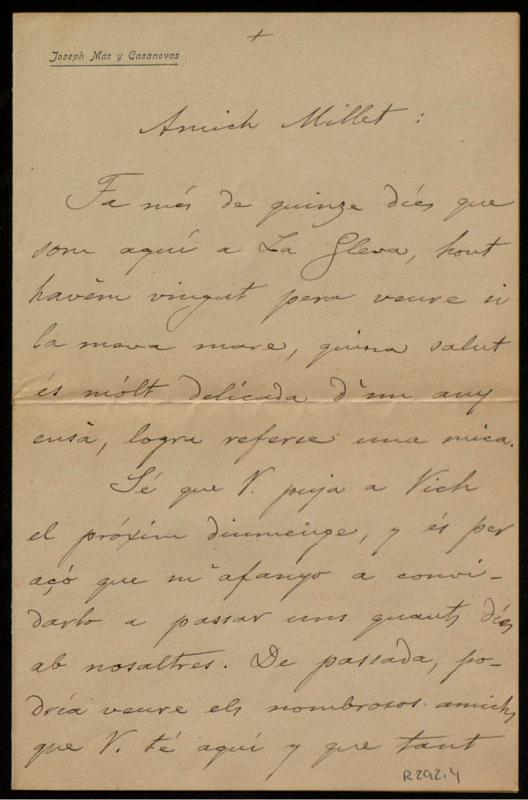 +
Joseph Mas y Casanovas
Amich Millet:
Fa més de quinze díes que
som aquí a La Gleva, hont
havèm vingut pera veure si
la meva mare, quina salut
és mólt delicada d'un any
ensà, logra referse una mica.
Sé que V. puja a Vich
el próxim diumenge, y és per
açó que m'afanyo a convi-
darlo a passar uns quants díes
ab nosaltres. De passada, po-
dría veure els nombrosos amichs
que V. té aquí y que tant
R292.4